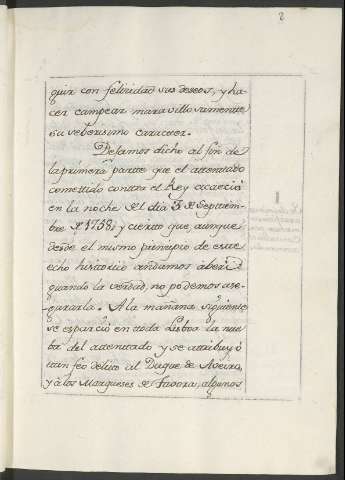 8
guir con felicidad sus deseos, y ha-
cer campear maravillosamente
su seberisimo caracter.
Dejamos dicho al fin de
la primera parte que el attentado
comettido contra el Rey acaeció
en la noche del dia 3 de Septiem-
bre de 1758; y cierto que, aunque
desde el mismo principio de este
echo historico andamos
quando la verdad, no podemos ase-
gurarla. A la mañana siguiente
se esparció en toda Lisboa la nue-
ba del attentado y se attribuyó
tan feo delito al Duque de Aveiro,
y á los Marqueses de Tavora, algunos